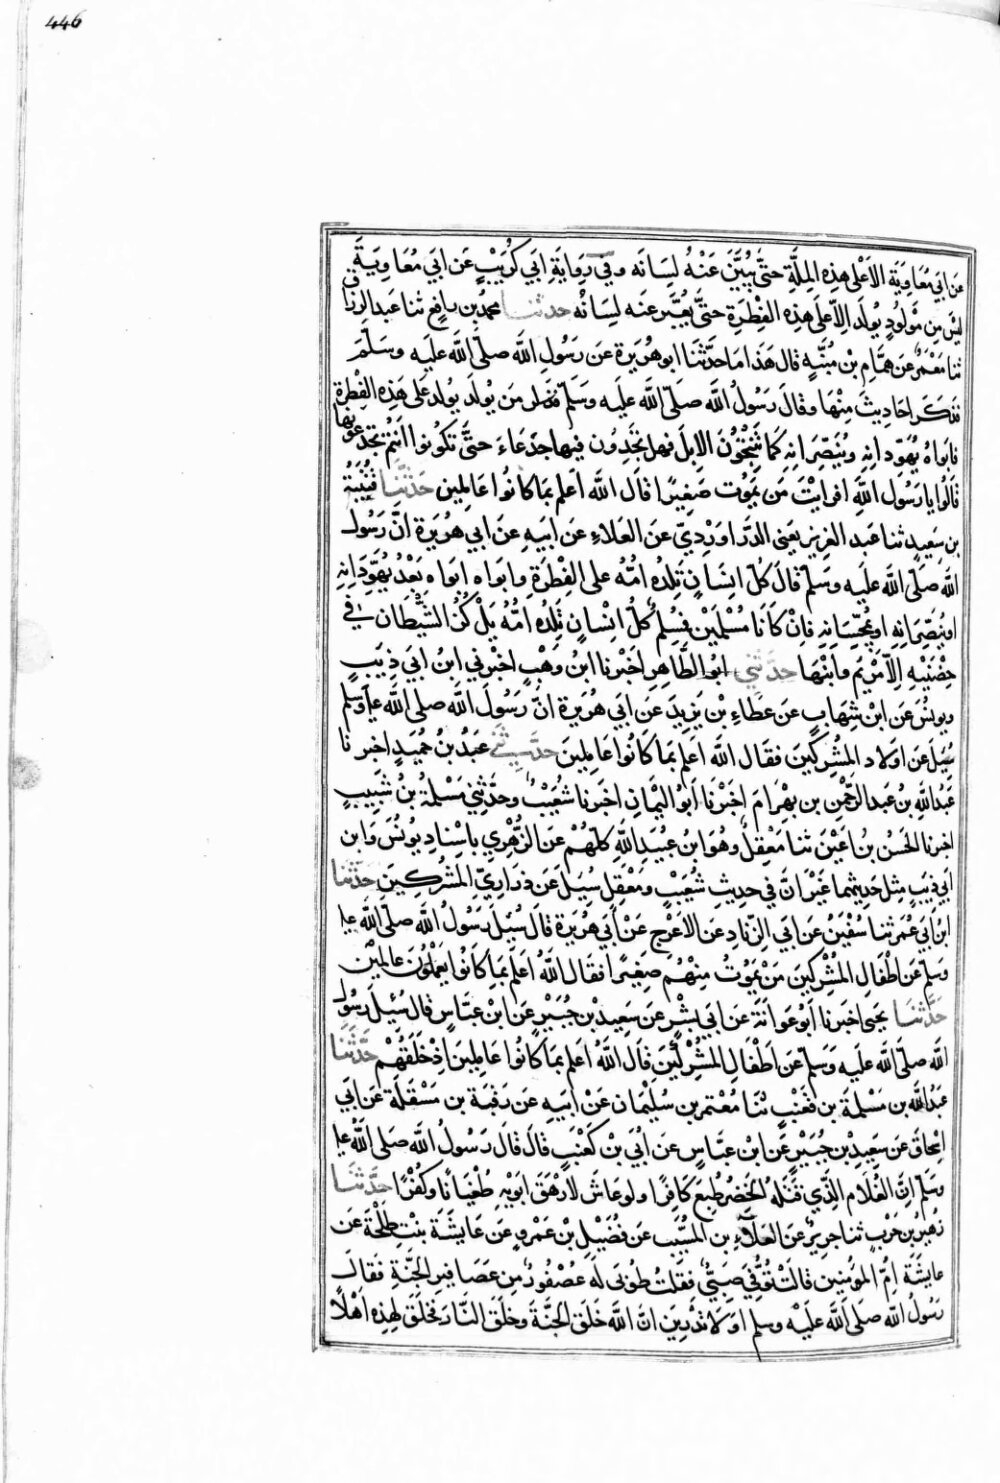 446
عَن ابي مُعَاوِيَة الا عَلى هذِه المِلَّة حتىّ يُبَيّنَ عَنْهُ لِسَانه وفي رِوايَةِ ابي كُرَيْبٍ عَن ابي مُعَاوِيَة
ليسَ مِن مَوْلُودٍ يُولَد اِلاّ عَلى هذه الفِطْرَةِ حتىَّ يُعَبّر عنه لِسَانُه حدثنا محمدُ بن رافِع ثنا عَبد الرزا
ثنا مَعْمَرٌ عَن هَمَّامِ بْن مُنَبّهٍ قال هَذَا مَا حَدَّثَنَا ابوهُرَيرَة عَن رَسُولِ اللَّه صلّى اللَّه عليه وسَلّم
فذكَرَ احَادِيثَ مِنْهَا وقال رَسُولُ اللَّه صَلّى اللَّه عليه وسَلّم مَن يُولَد يُولَد عَلى هَذِه الفِطْرَة
فابَواهُ يُهَوّدانِهِ ويُنَصّرانِهِ كمَا تَنْتِجُونَ الاِبلَ فهل تَجَدُون فيها جَدْعَاءَ حَتىَّ تكُونُوا انتُم تجدعُونها
قالُوا يا رَسُول اللَّه افرايْتَ مَن يَمُوت صَغِيرًا قالَ اللَّه اعلَم بمَا كانُوا عَامِلِين حَدَّثَنَا قُتَيْبَةُ
بن سَعِيدٍ ثنا عَبد العَزِيز يَعني الدَّرَاوَرْدِيّ عَن العَلاءِ عَن ابيهِ عَن ابي هُرَيرَة انّ رَسُول
اللَّه صَلّى اللَّه عليه وسَلّم قالَ كلّ اِنسَانٍ تَلِدُه امُّهُ على الفِطْرَةِ وابَواه بَعْدُ يُهَوّدَانِهِ
اويُنَصّرانِهِ اويُمَجّسَانِهِ فاِنْ كَانَا مُسْلمَيْن فمُسْلِم كُلُّ انْسانٍ تَلِدُه امُّهُ يَلْكُزُ الشَّيْطَان في
حِضْنَيْهِ اِلاّ مَرْيَم وابْنَهَا حدَّثني ابُو الطَّاهِرِ اخبرنا ابنُ وهْبٍ اخبرني ابنُ ابي ذِيبٍ
ويونُسُ عَن ابْن شِهَابٍ عن عَطَاءِ بْن يَزِيدَ عَن ابي هُرَيرَة انّ رَسُولَ اللَّه صلى اللَّه عليه وسلم
سُيلَ عَن اوْلاد المُشرِكِينَ فقال اللَّه اعلَم بمَا كَانُوا عَامِلِينَ حدَّثني عَبْدُ بنُ حُمَيدٍ اخبرنا
عَبدُ اللَّهِ بْن عَبد الرَّحْمن بن بهْرَامَ اخبَرْنَا ابُو اليَمانِ اخبرنا شُعَيْبٌ وحدّثني سَلمَة بنُ شَبِيبٍ
اخبرنا الحَسَنُ بنُ اعْيَنَ ثنا مَعْقِلٌ وهُوَ ابنُ عُبَيدِ اللَّهِ كلّهُمْ عَن الزُّهْرِي باِسْنَادِ يُونُسَ وابن
ابي ذِيبٍ مِثْل حَديثِهما غَيْرَ انّ في حديثِ شُعَيْبٍ ومَعْقِلٍ سُيلَ عَن ذَرارِيِّ المُشركِينَ حَدَّثنا
ابْنُ ابي عُمَر ثنا سُفيْنُ عَن ابي الزِّنَادِ عَن الاعْرَج عَنْ ابي هُرَيرَة قالَ سُيلَ رَسُولُ اللَّه صَلى اللَّه علي
وسَلّم عَن اطْفَال المُشرِكينَ مَنْ يَمُوتُ مِنْهُم صَغِيرًا فقال اللَّهُ اعلَم بمَا كَانُوا عامِلِينَ
حَدَّثنَا يَحيى اخبَرنا ابُو عوانَة عن ابي بِشْرٍ عَن سَعِيد بْن جُبَيْرٍ عَن ابْن عبّاسٍ قال سُيلَ رسُولُ
اللَّه صلّى اللَّه عليه وسَلّم عَن اطْفَالِ المُشْرِكينَ قالَ اللَّهُ اعلَم بمَا كانُوا عَامِلِينَ اِذْ خَلقَهُم حَدَّثنَا
عَبدُ اللَّه بن مَسْلمَة بن قَعْنَبٍ ثنَا مُعْتَمر بن سُلَيْمَان عَنْ ابيهِ عَن رَقبَة بن مَسْقَلَة عَن ابي
اِسْحاق عَن سَعِيدِ بْن جُبَيْرٍ عَن ابْن عبّاسٍ عَن ابي بْن كَعْبٍ قالَ قالَ رَسُولُ اللَّه صَلى اللَّهُ علي
وسَلّم اِنّ الغُلامَ الَّذِي قَتَلهُ الخَضِرُ طُبِعَ كافِرًا ولوعَاش لارْهَقَ ابَوَيْهِ طُغْيَانًا وكُفْرًا حدَّثنَا
زُهيرُ بن حَربٍ ثنا جريرٌ عَن العَلاءِ بن المُسَيّب عَن فُضَيْل بْن عَمرٍو عَن عَايشَة بنْت طلْحَة عَن
عايشَة امّ المُومنين قالَتْ تُوُفّيَ صَبيٌّ فقلت طُوبى لَه عُصْفُورٌ مِن عَصَافِير الجَنّة فقالَ
رَسُولُ اللَّه صَلى اللَّه عليْه وسلم اوَلا تَدْرِينَ انّ اللَّه خَلقَ الجنّةَ وخلَقَ النّارَ فخَلقَ لِهَذِه اهْلًا